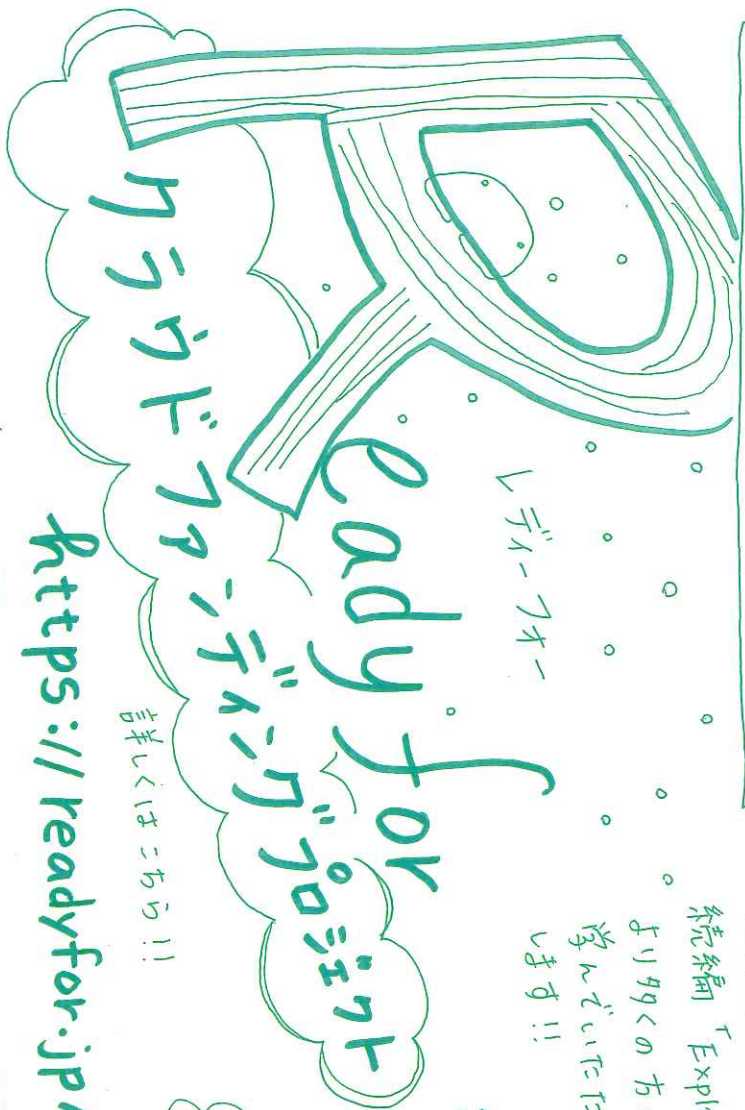 Ready for
レディーフォー
クラウドファンディングプロジェクト
詳しくはこちら!!
https://readyfor.jp/
続編「Expl
より多くの方
学んでいただ
します!!